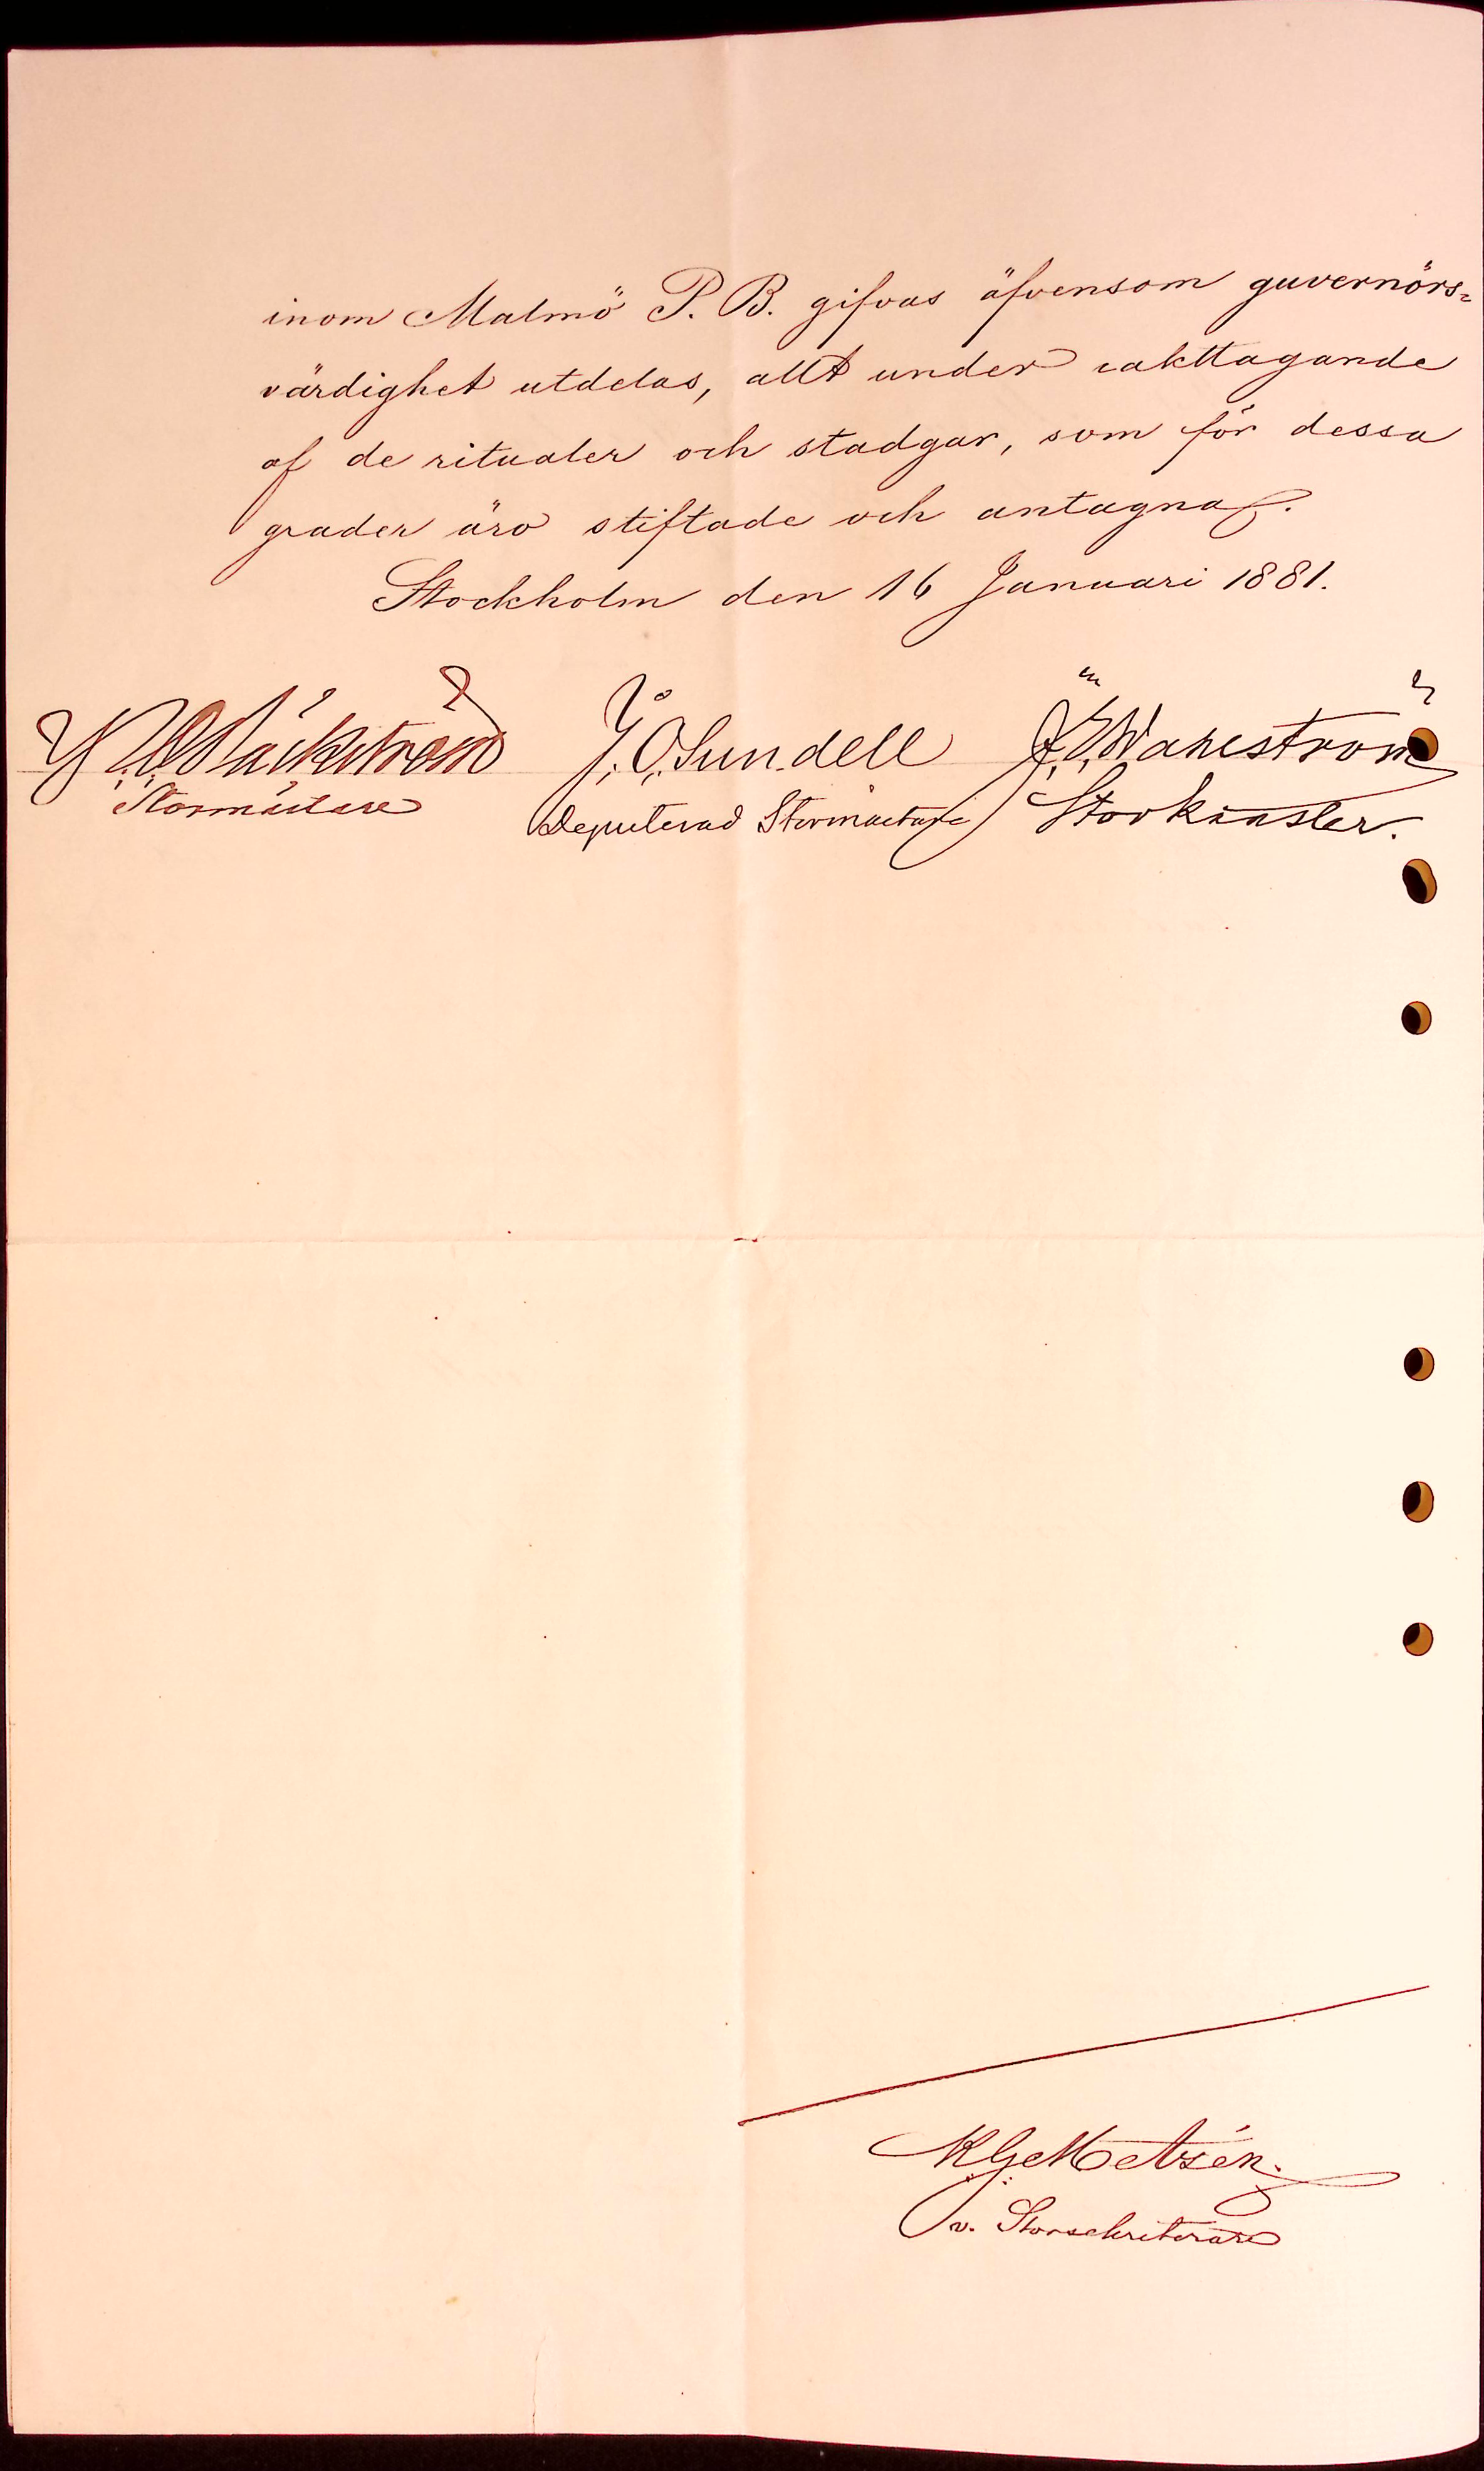 inom Malmö P. B. gifvas äfvensom guvernörs=
värdighet utdelas, allt under iakttagande
af de ritualer och stadgar, som för dessa
grader äro stiftade och antagna.
Stockholm den 16 Januari 1881.
Bäckström J. O. Sundell Wahlström
Stormästare Deputerad Stormästare Storkansler.
K G Metsén.
v. Storsekreterare